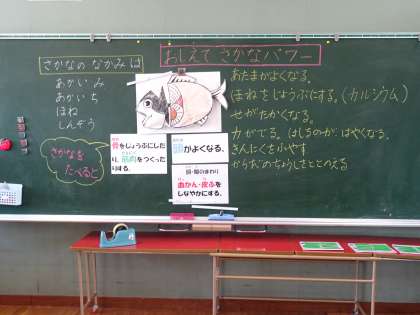 さかなの なかみ は
あかい み
あかい ち
ほね
しんぞう
さかなを
たべると
おしえて さかなパワー
骨をじょうぶにした
り、筋肉をつくった
りする。
頭がよくなる。
血かん・皮ふを
しなやかにする。
あたまがよくなる。
ほねをじょうぶにする。(カルシウム)
せがたかくなる。
力がでる。はしるのが、はやくなる。
きんにくをふやす
からだのちょうしをととのえる